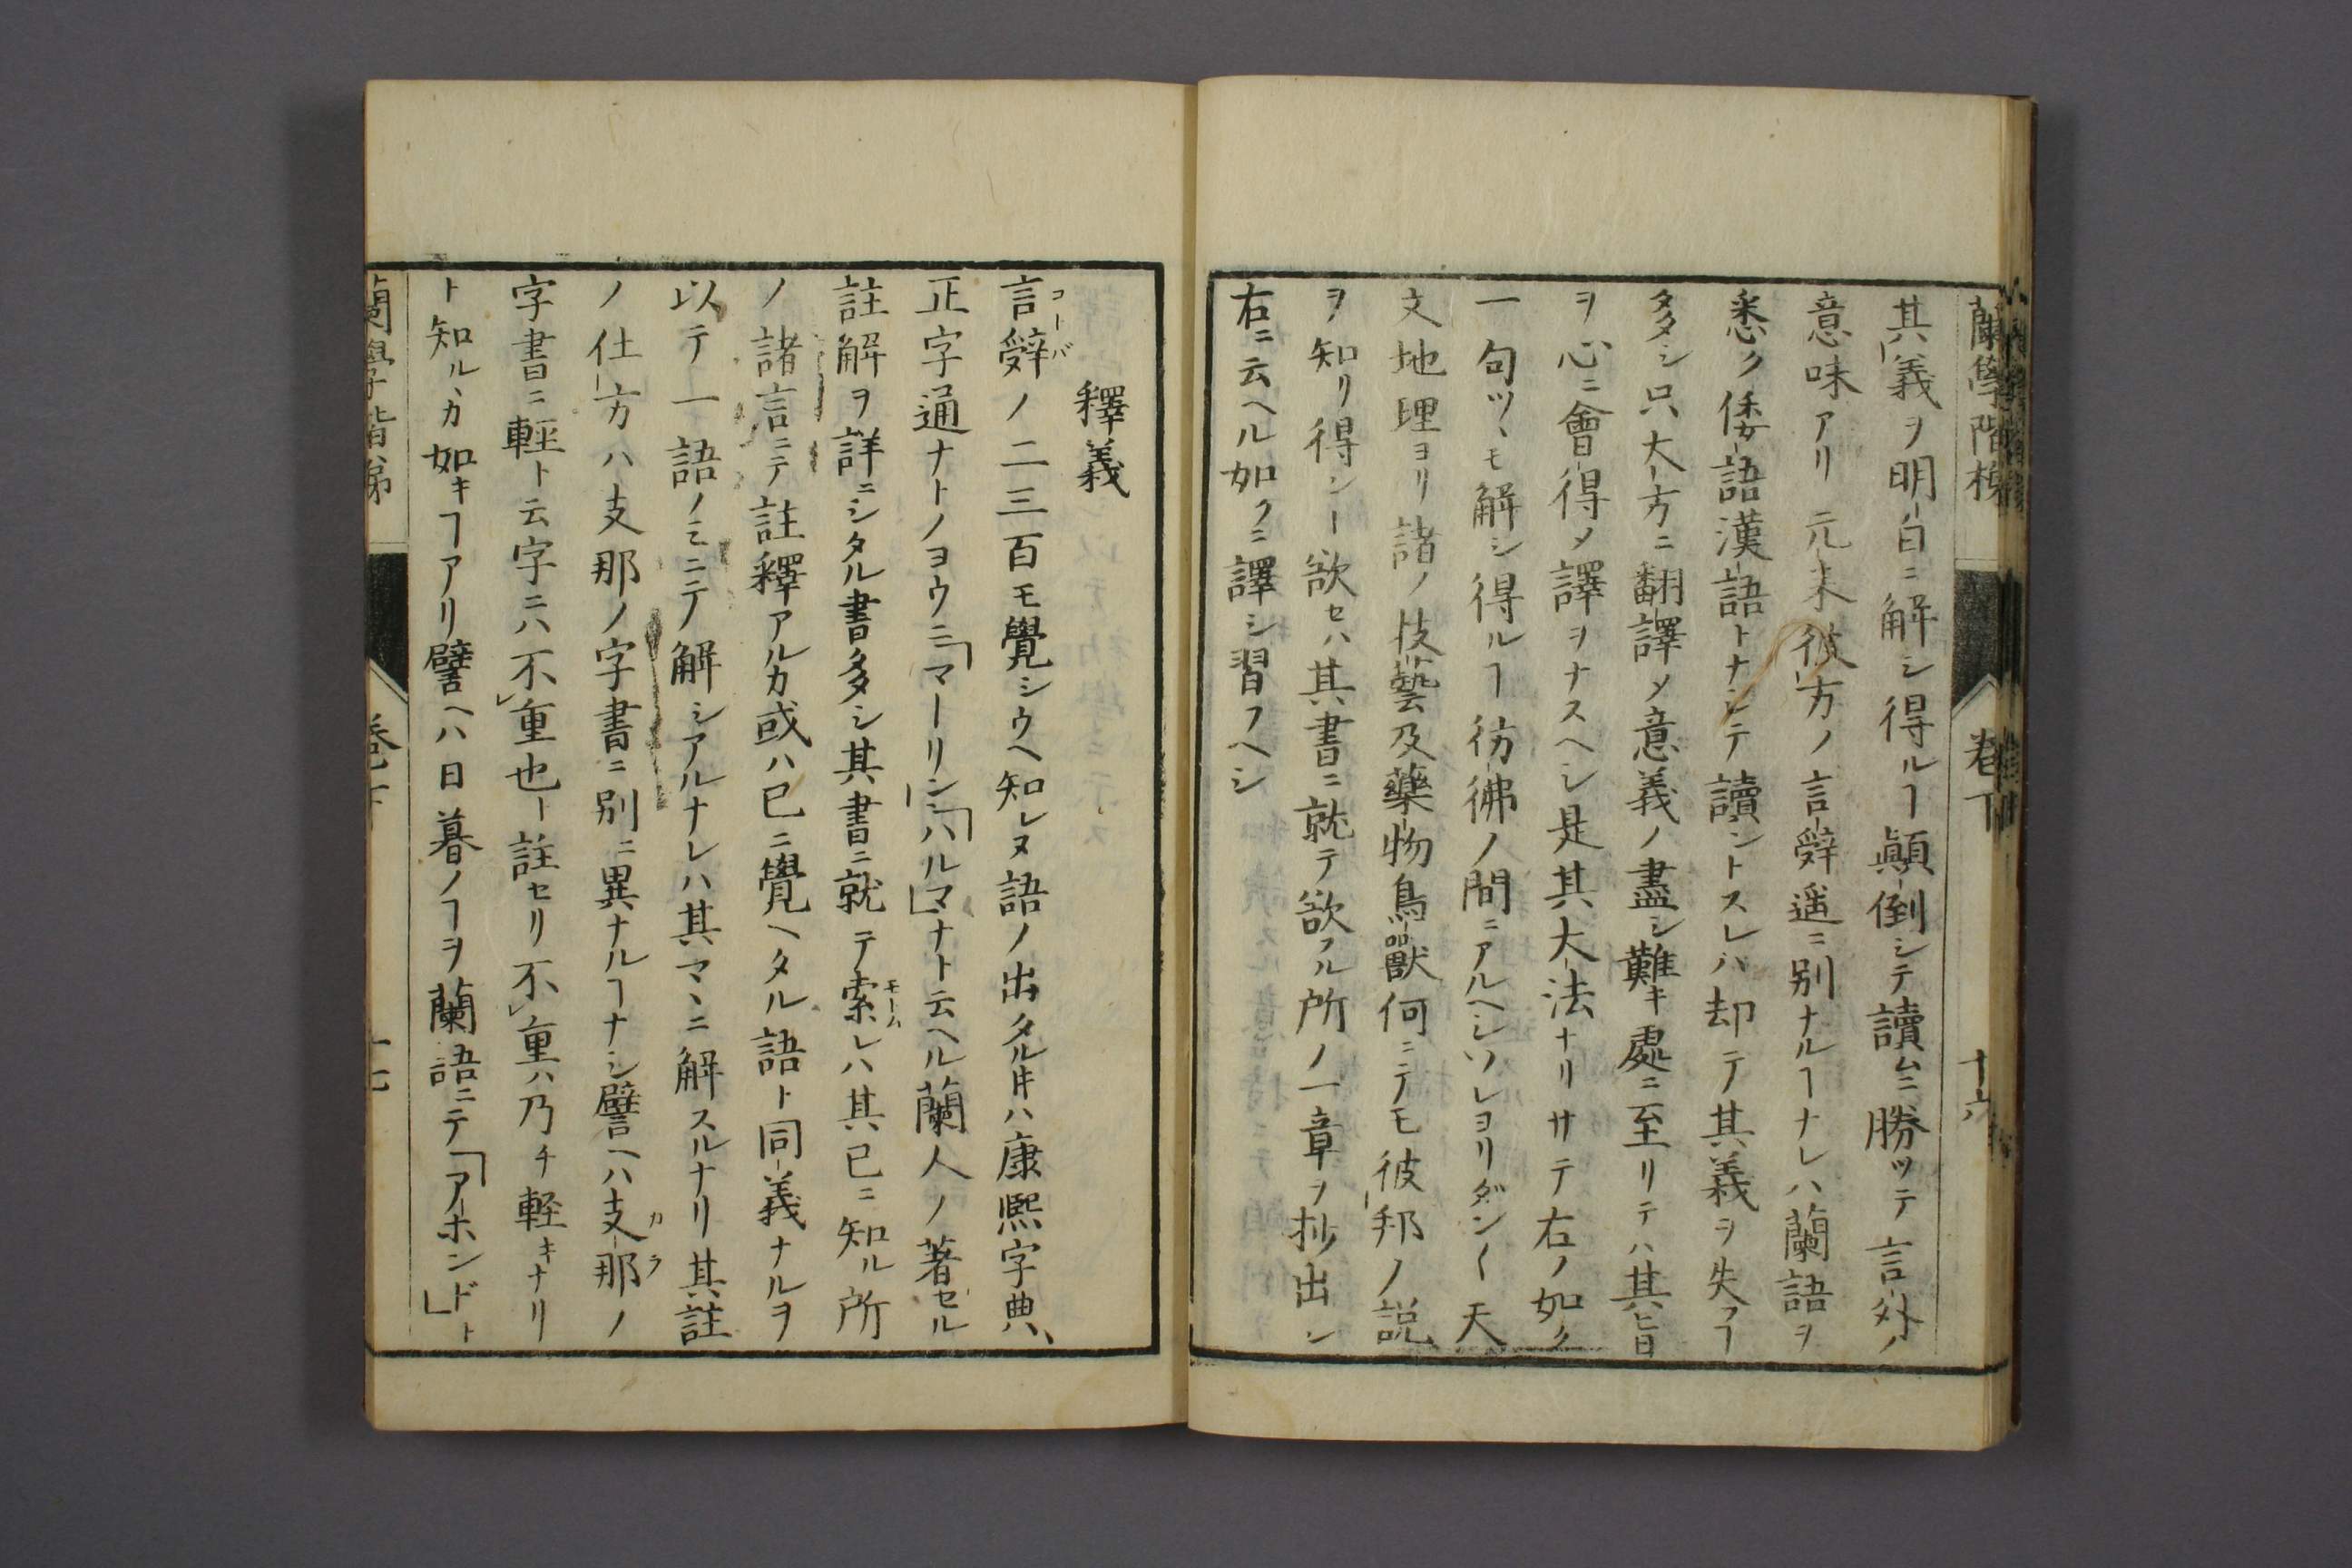 蘭學階梯 卷下 十六
其義ヲ明白ニ解シ得ルヿ顚倒シテ讀ムニ勝ツテ言外ノ
意味アリ元来彼方ノ言辭遥ニ別ナルヿナレハ蘭語ヲ
悉ク倭語漢語トナシテ讀ントスレバ却テ其義ヲ失フヿ
多シ只大方ニ翻譯メ意義ノ盡シ難キ處ニ至リテハ其旨
ヲ心ニ會得メ譯ヲナスヘシ是其大法ナリサテ右ノ如ク
一句ツヽモ解シ得ルヿ彷彿ノ間ニアルヘシソレヨリダン〱天
文地理ヨリ諸ノ技藝及藥物鳥獸何ニテモ彼邦ノ説
ヲ知リ得ント欲セハ其書ニ就テ欲フル所ノ一章ヲ抄出シ
右ニ云ヘル如クニ譯シ習フヘシ
釋義
言辭ノ二三百モ覺シウヘ知レヌ語ノ出タル𪜈ハ康熙字典、
コトバ
正字通ナトノヨウニ「マーリン」「ハルマ」ナト云ヘル蘭人ノ著セル
註解ヲ詳ニシタル書多シ其書ニ就テ索レハ其已ニ知ル所
モトム
ノ諸言ニテ註釋アルカ或ハ已ニ覺ヘタル語ト同義ナルヲ
以テ一語ノミニテ解シアルナレハ其マヽニ解スルナリ其註
ノ仕方ハ支那ノ字書ニ別ニ異ナルヿナシ譬ヘハ支那ノ
カラ
字書ニ輕ト云字ニハ不重也ト註セリ不重ハ乃チ軽キナリ
ト知ルヽカ如キヿアリ譬ヘハ日暮ノヿヲ蘭語ニテ「アーホンド」ト
蘭學階梯 卷下 十七